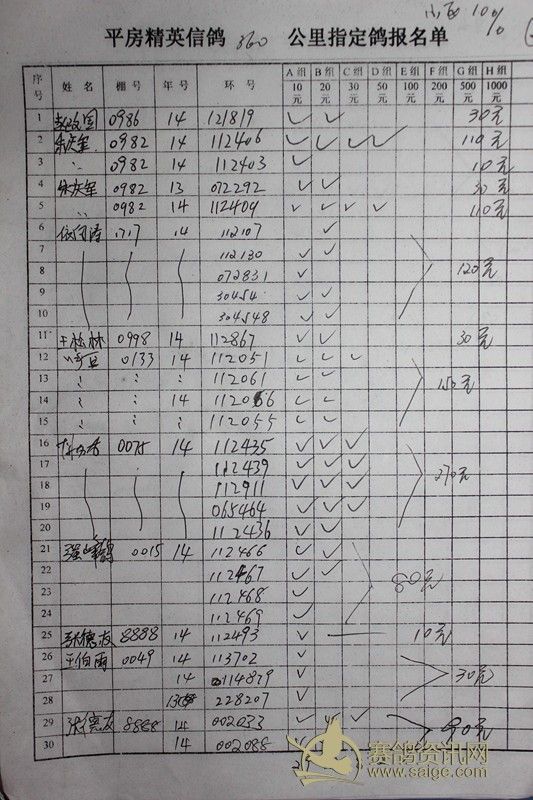 10%
平房精英信鸽 360 公里指定鸽报名单
序号 姓名 棚号 年号 环号 A组10元 B组20元 C组30元 D组50元 E组100元 F组200元 G组500元 H组1000元
1 0986 14 121819 ✓ ✓ 30元
2 0982 14 112406 ✓ ✓ ✓ ✓ 110元
3 〃 0982 14 112403 ✓ 10元
4 0982 13 072292 ✓ ✓ 30元
5 〃 0982 14 112409 ✓ ✓ ✓ ✓ 110元
6 1717 14 112107 ✓
7 112130 ✓ ✓
8 072831 ✓ 120元
9 30454 ✓ ✓
10 304548 ✓ ✓
11 王松林 0998 14 112867 ✓ ✓ 30元
12 0133 14 112051 ✓ ✓ ✓
13 112061 ✓ ✓ 150元
14 14 112066 ✓ ✓
15 112055 ✓ ✓
16 14 112435 ✓ ✓ ✓
17 112439 ✓ ✓ ✓
18 112911 ✓ ✓ ✓ 270元
19 065464 ✓ ✓ ✓
20 112436 ✓ ✓
21 0015 14 112466 ✓ ✓
22 112467 ✓ ✓ 80元
23 112468 ✓
24 112469 ✓
25 张德友 8888 14 112493 ✓ 10元
26 王伯雨 0049 14 113702 ✓
27 14 114879 ✓ 30元
28 13 228207 ✓
29 张德友 8888 14 002033 ✓ ✓ ✓ 90元
30 14 002088 ✓
赛鸽资讯网
www.saige.com